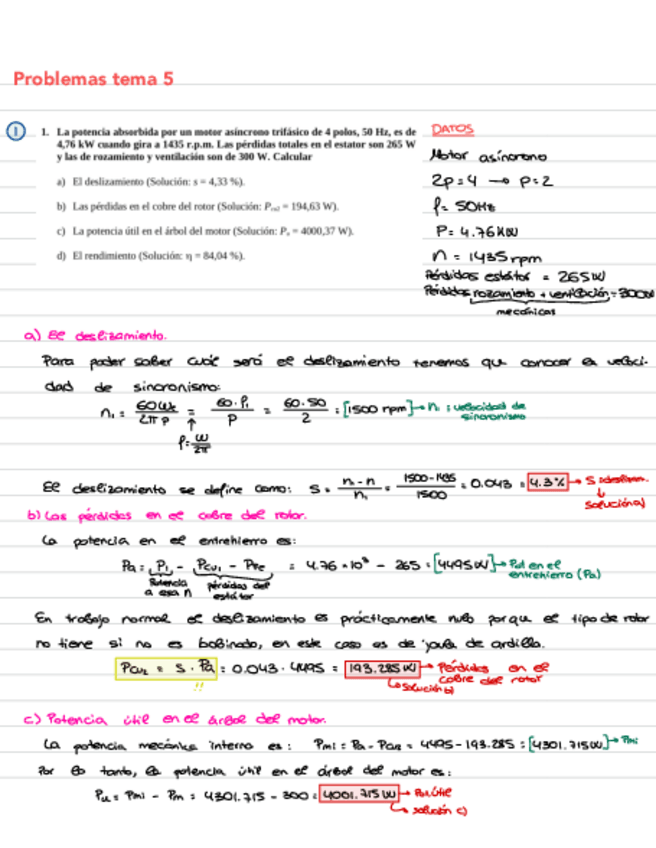 Problemas tema 5
1
1. La potencia absorbida por un motor asíncrono trifásico de 4 polos, 50 Hz, es de
4,76 kW cuando gira a 1435 r.p.m. Las pérdidas totales en el estator son 265 W
y las de rozamiento y ventilación son de 300 W. Calcular
a) El deslizamiento (Solución: s = 4,33 %).
b) Las pérdidas en el cobre del rotor (Solución: Pcu2 = 194,63 W).
c) La potencia útil en el árbol del motor (Solución: Pu = 4000,37 W).
d) El rendimiento (Solución: η = 84,04 %).
DATOS
Motor asíncrono
2p=4 → p=2
f= 50Hz
P= 4.76KW
n = 1435 rpm
Pérdidas estátor = 265W
Pérdidas rozamiento + ventilación = 300W
mecánicas
a) El deslizamiento.
Para poder saber cual será el deslizamiento tenemos que conocer la veloci-
dad de sincronismo:
n₁ = 60ω₁/2πp = 60·f₁/p = 60·50/2 = [1500 rpm] → n₁ : velocidad de sincronismo
f = ω/2π
El deslizamiento se define como: S = n₁-n/n₁ = 1500-1435/1500 = 0.043 = 4.3% → S
Solución a)
b) Las pérdidas en el cobre del rotor.
La potencia en el entrehierro es:
Pa = P₁ - Pcu₁ - PFe = 4.76·10³ - 265 = [4495W] → Pot en el entrehierro (Pa)
Potencia a esa n pérdidas del estátor
En trabajo normal el deslizamiento es prácticamente nulo porque el tipo de rotor
no tiene si no es bobinado, en este caso es de jaula de ardilla.
Pcu₂ = S · Pa = 0.043 · 4495 = 193.285W → Pérdidas en el cobre del rotor
!!
Solución b)
c) Potencia útil en el árbol del motor.
La potencia mecánica interna es: Pmi = Pa - Pcu₂ = 4495 - 193.285 = [4301.715W] → Pmi
Por lo tanto, la potencia útil en el árbol del motor es:
Pu = Pmi - Pm = 4301.715 - 300 = 4001.715W → Pot. útil
solución c)